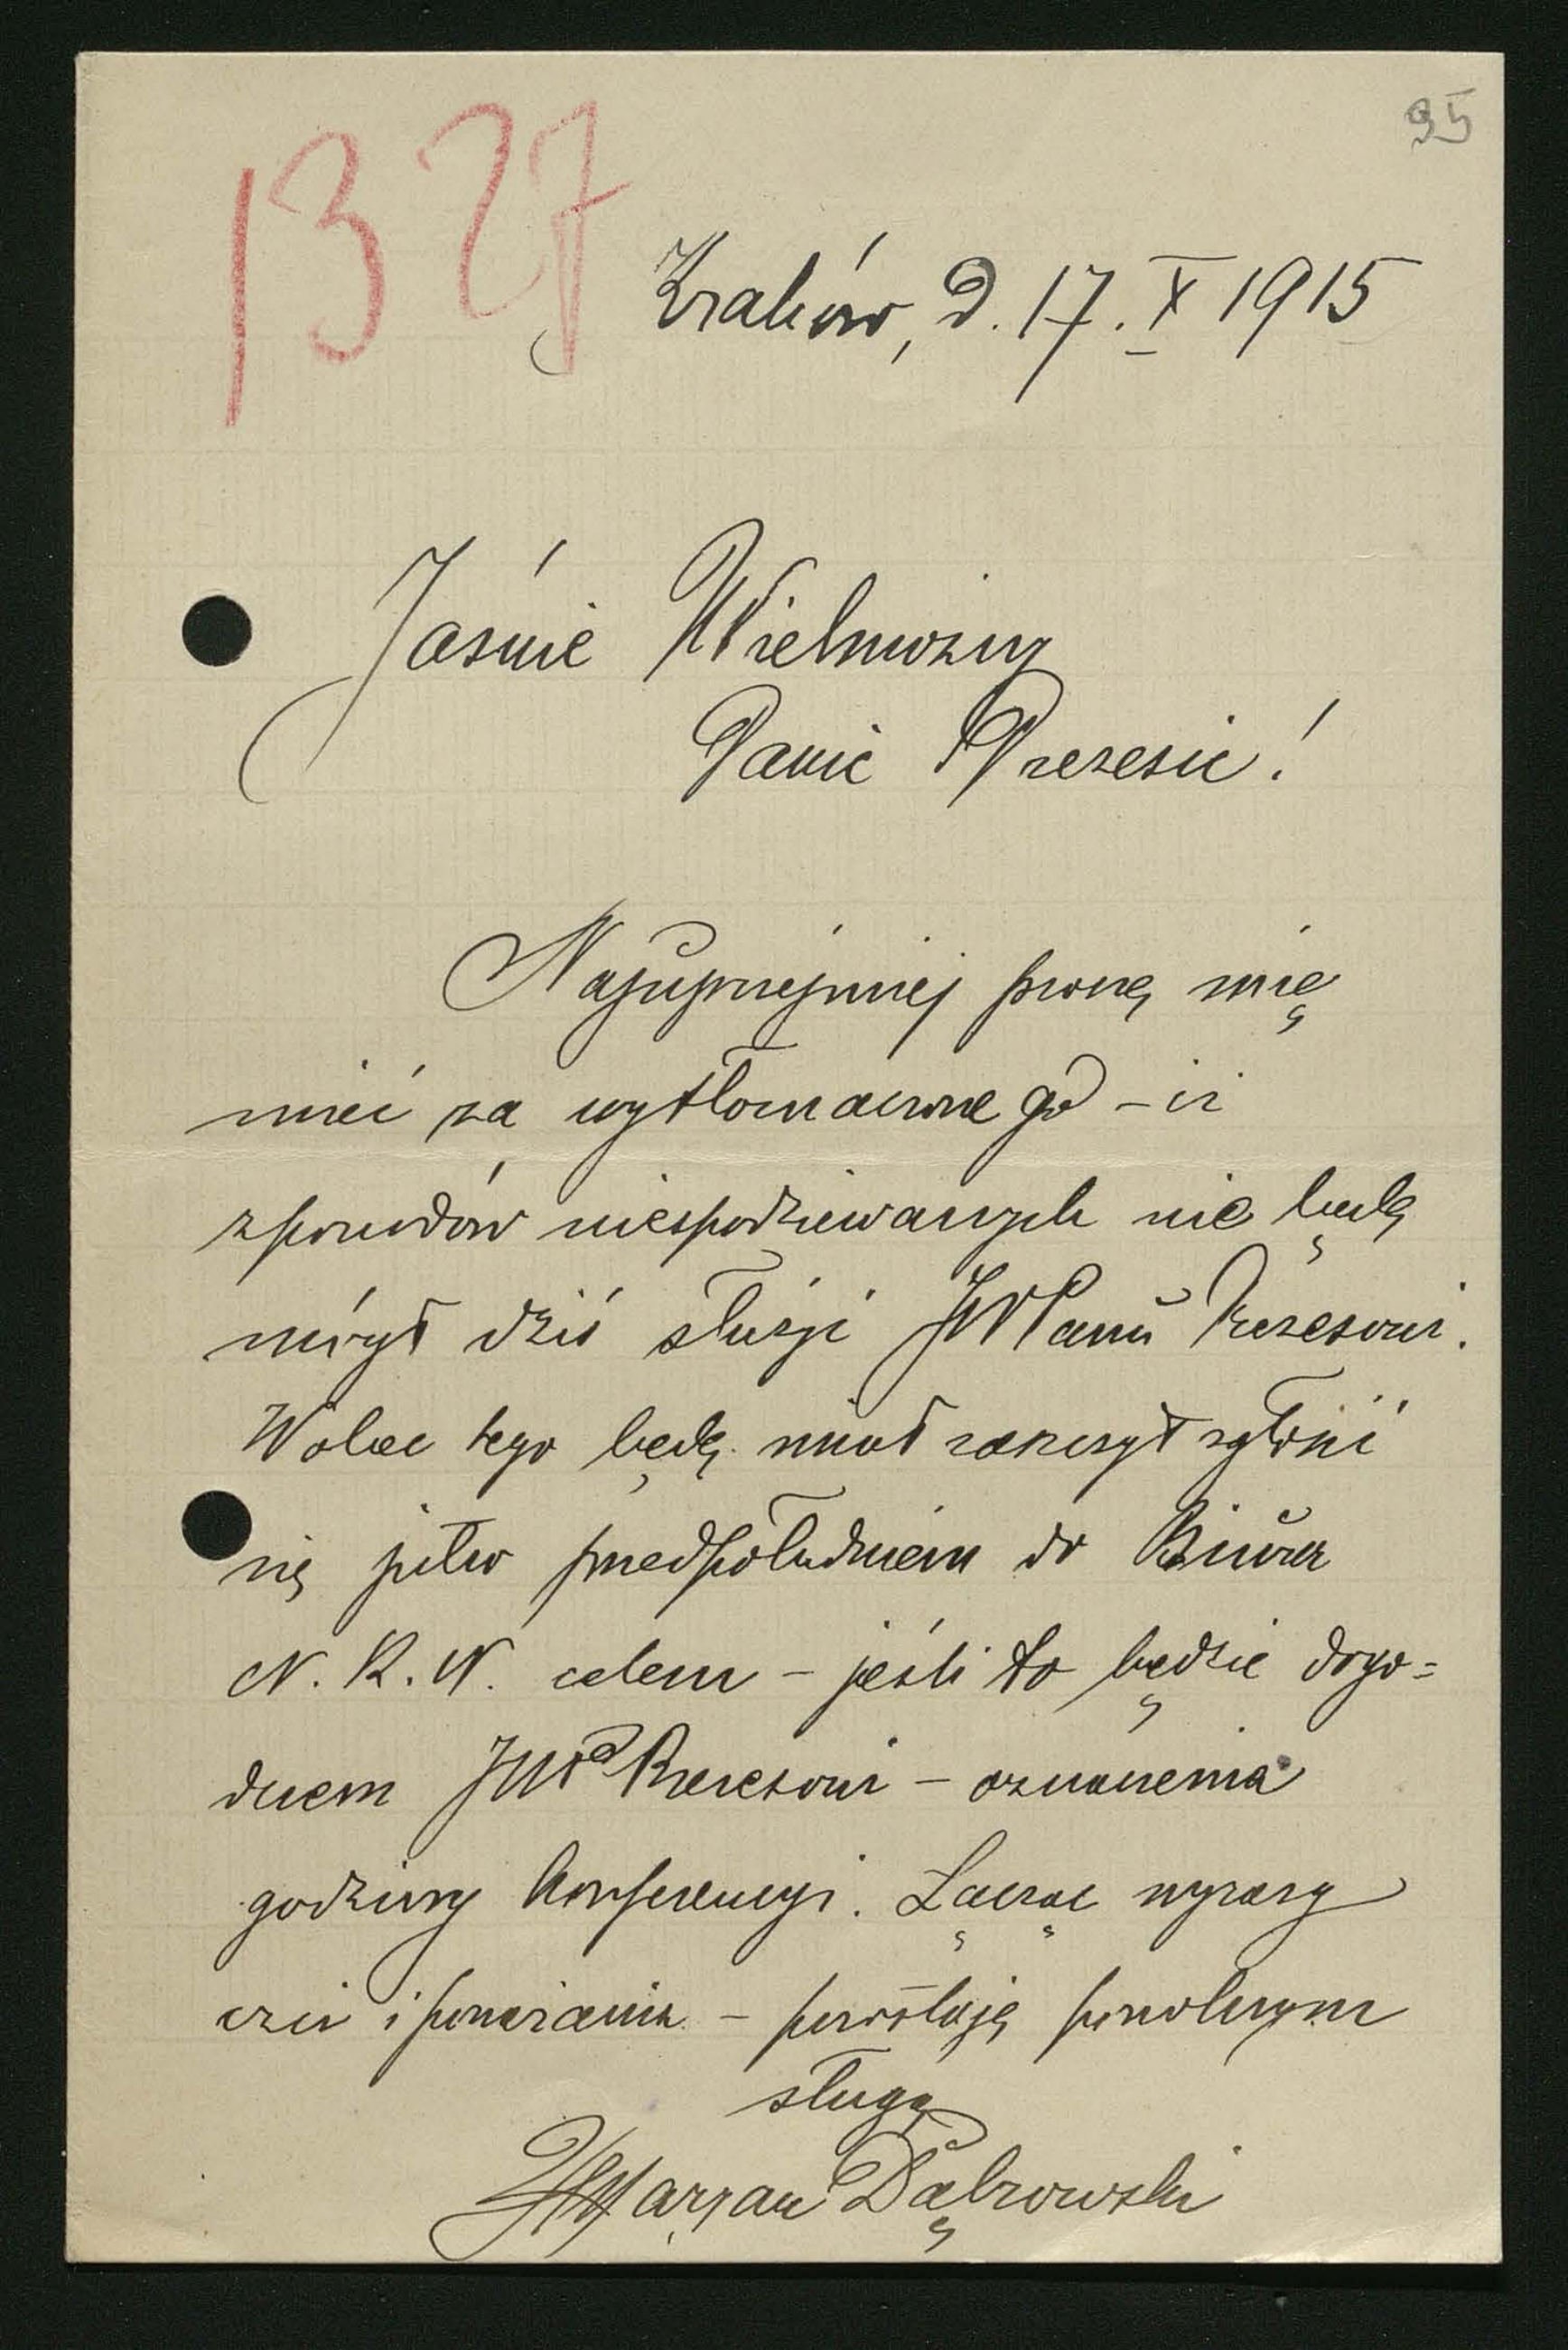 95
1327
Kraków, d. 17. X 1915
Jaśnie Wielmożny
Panie Prezesie!
Najuprzejmiej proszę mię
mieć za wytłomaczonego – iż
z powodów niespodziewanych nie będę
mógł dziś służyć JWPanu Prezesowi.
Wobec tego będę miał zaszczyt zgłosić
się jutro przedpołudniem do Biura
N. K. N. celem – jeśli to będzie dogo=
dnem JWP Prezesowi – oznaczenia
godziny konferencyi. Łącząc wyrazy
czci i poważania – pozostaję powolnym
sługą
Maryan Dąbrowski